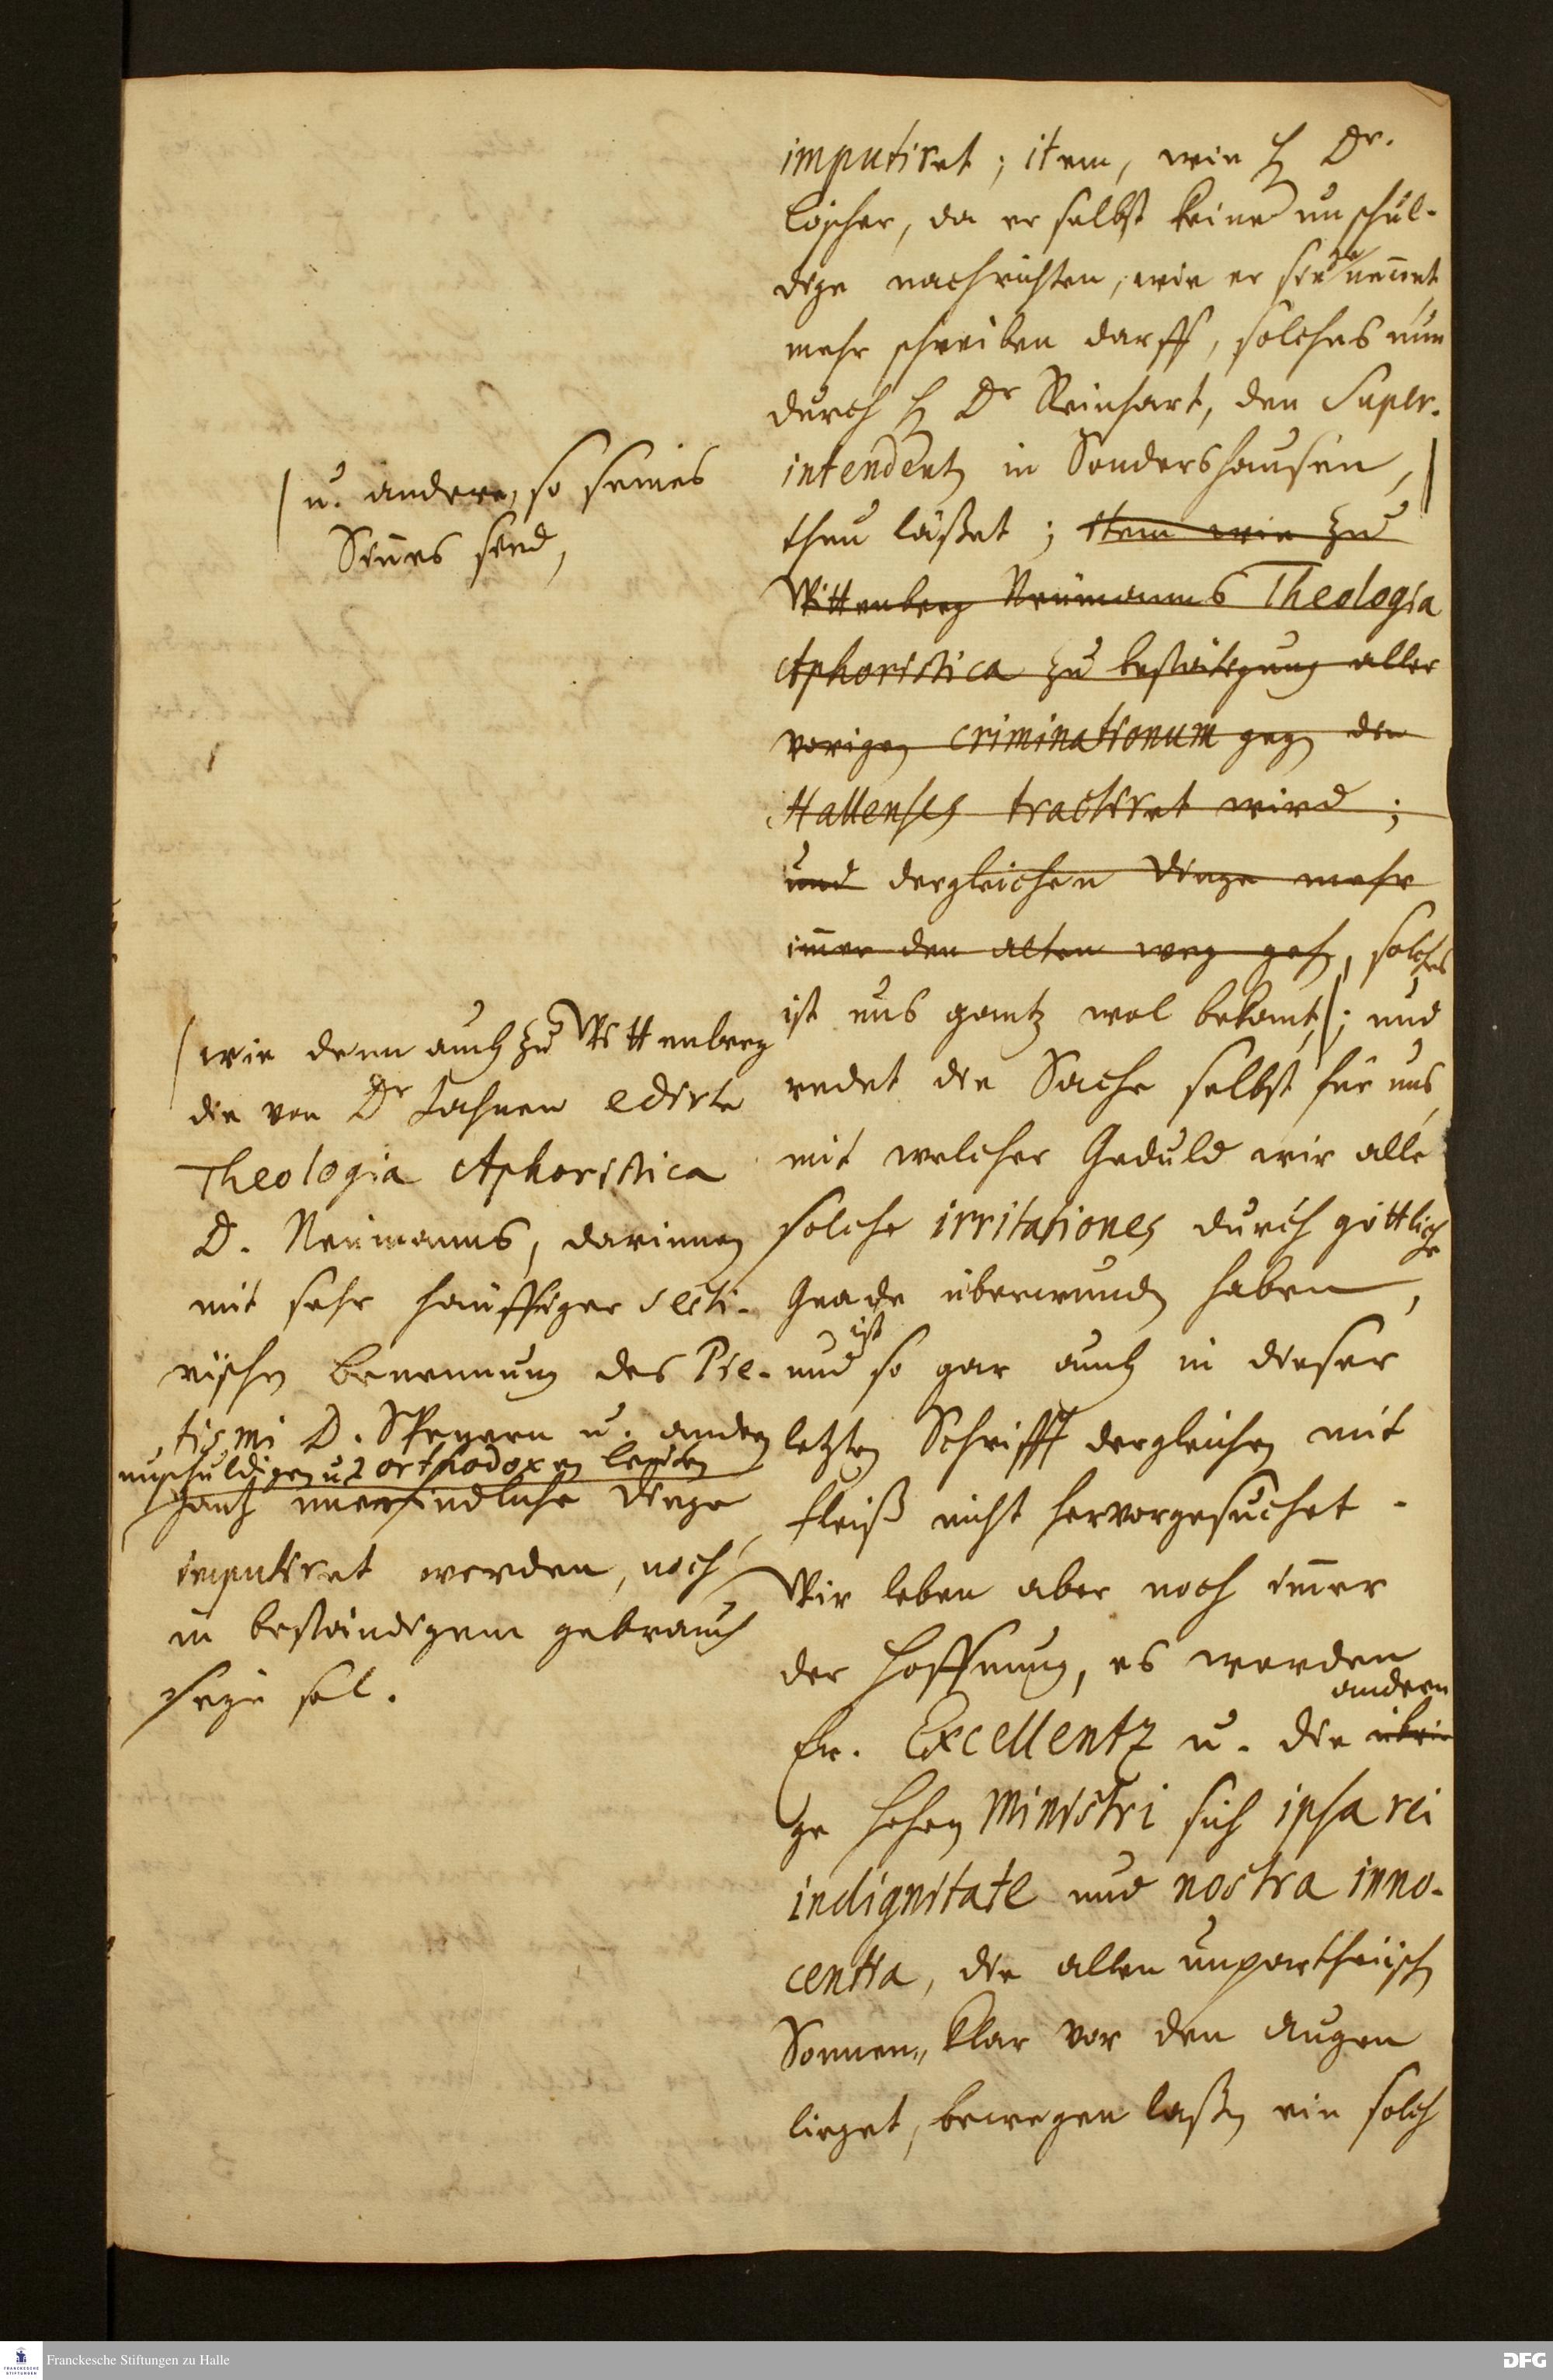 imputiret; item, wie H. Dr.
Löscher, da er selbst keine unschul-
dige nachrichten, wie er sie nennet,
mehr schreiben darff, solches nun
durch H. Dr Reinhart, den Super-
intendent in Sondershausen, |
thun läßet; item wie zu
Wittenberg Neumanns Theologia
Aphoristica zu bestätigung aller
vorigen criminationum gegen die
Hallenses tractiret wird;
und dergleichen dinge mehr
immer den alten weg gehen, solches
ist uns gantz wol bekant |; und
redet die Sache selbst für uns,
mit welcher Geduld wir alle
solche irritationes durch göttliche
Gnade überwunden haben,
und ist so gar auch in dieser
letzten Schrifft dergleichen mit
fleiß nicht hervorgesuchet.
Wir leben aber noch immer
der Hoffnung, es werden
andern
Ew. Excellentz u. die übri-
ge hohen Ministri sich ipsa rei
indignitate und nostra inno-
centia, die allen unpartheiisch
Sonnen-klar vor den augen
lieget, bewegen laßen ein solch
| u. andere, so seines
Sinnes sind,
| wie denn auch zu Wittenberg
die von Dr Jahnen edirte
Theologia Aphoristica
D. Neumanns, darinnen
mit sehr häuffiger secti-
rischen benennung des Pie-
tismi D. Spenern u. andern
unschuldigen u. orthodoxen leuten
gantz unerfindliche dinge
imputiret werden, noch
in beständigem gebrauch
seyn sol.
Franckesche Stiftungen zu Halle
DFG
FRANCKESCHE
STIFTUNGEN